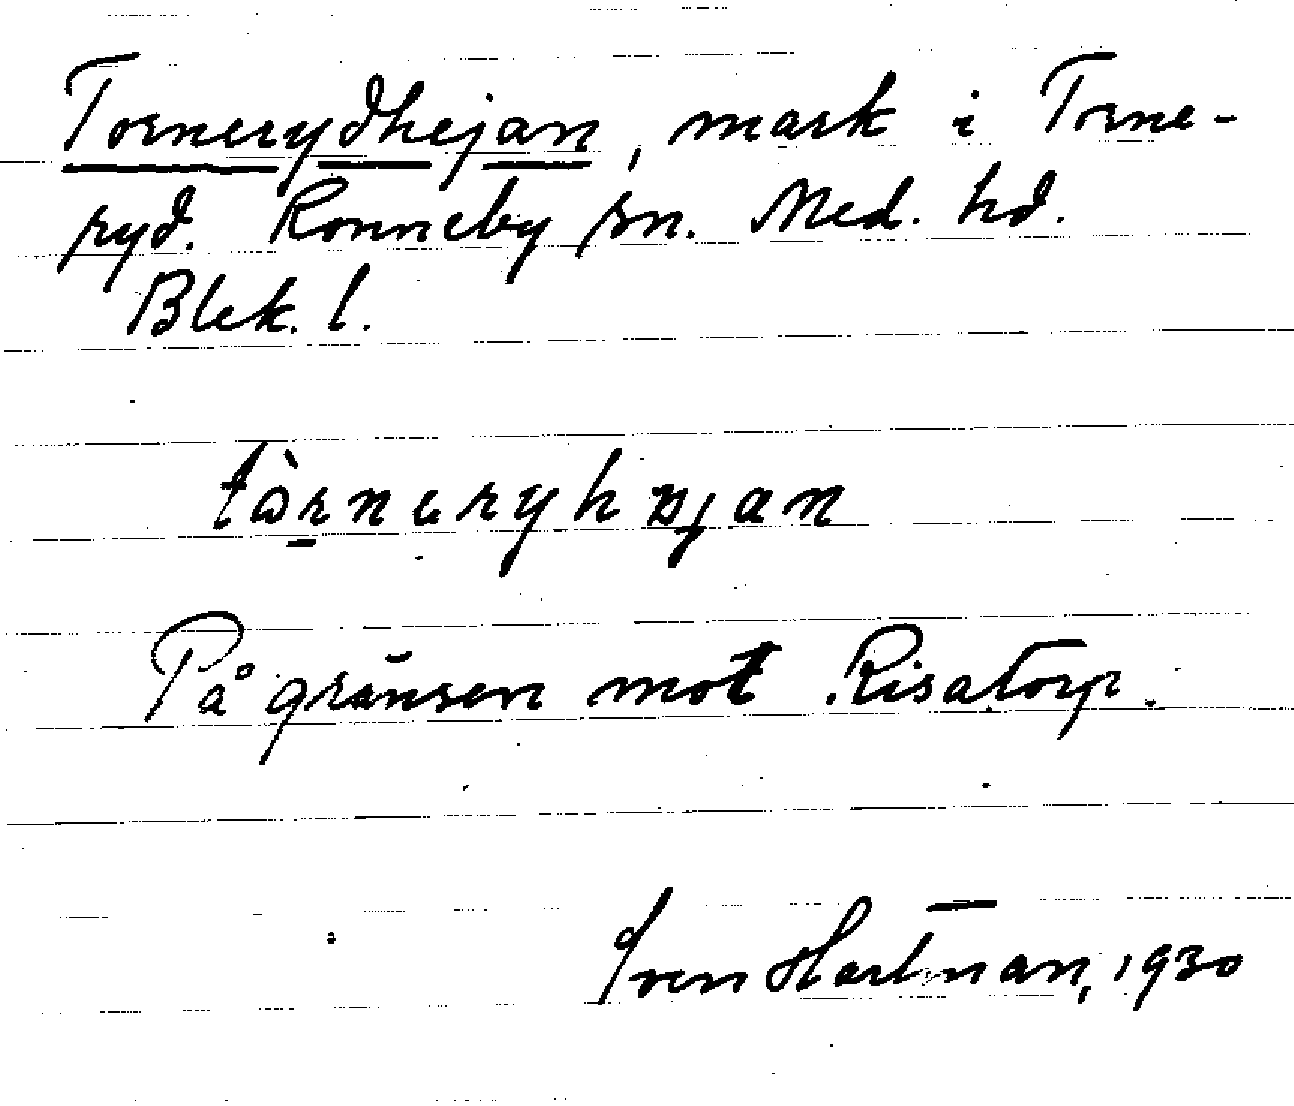 Tornerydhejan, mark i Torne-
ryd. Ronneby sn. Med. hd.
Blek. l.
På gränsen mot Risatorp.
Sven Hartman, 1930